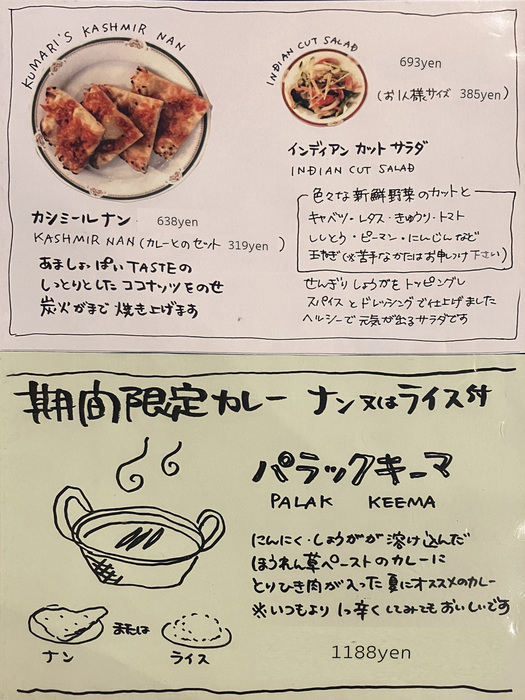 KUMARI'S KASHMIR NAN
カシミールナン 638yen
KASHMIR NAN (カレーとのセット 319yen )
あましょっぱいTASTEの
しっとりとしたココナッツをのせ
炭火がまで 焼き上げます
INDIAN CUT SALAD
693yen
(お1人様サイズ 385yen)
インディアン カット サラダ
INDIAN CUT SALAD
色々な新鮮野菜のカットと
キャベツ・レタス・きゅうり・トマト
ししとう・ピーマン・にんじんなど
玉ねぎ(※苦手なかたはお申しつけ下さい)
せんぎり しょうがを トッピングし
スパイス と ドレッシング で仕上げました
ヘルシーで 元気が出るサラダです
期間限定カレー ナン又はライス付
パラックキーマ
PALAK KEEMA
にんにく・しょうがが 溶け込んだ
ほうれん草ペーストのカレーに
とりひき肉が入った 夏にオススメのカレー
※いつもより 1つ辛くしてみてもおいしいです
ナン または ライス
1188yen